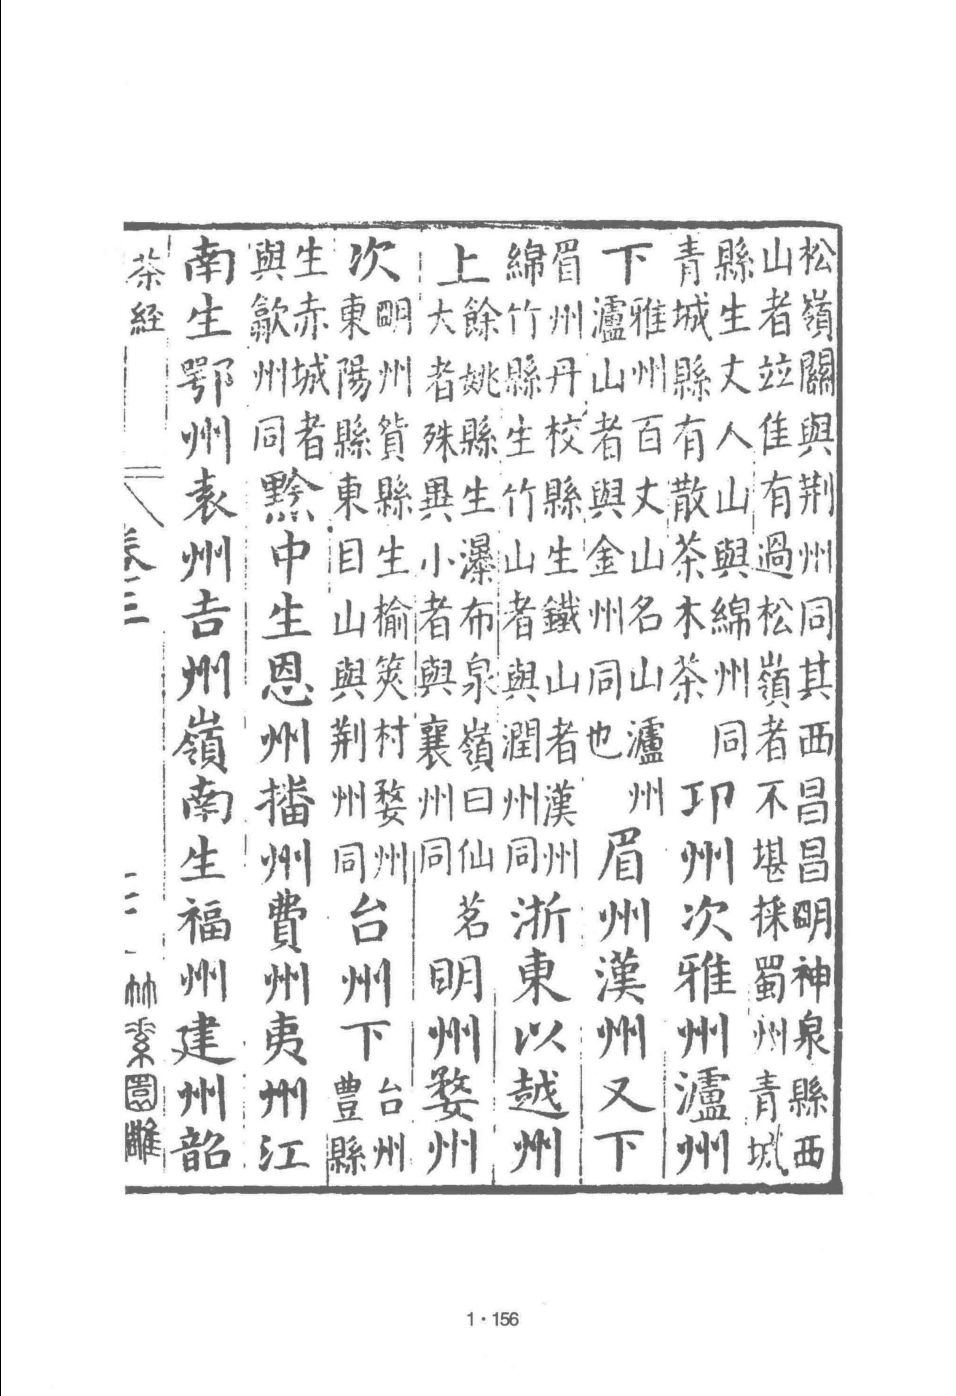 松嶺關與荆州同其西昌昌明神泉縣西
山者竝佳有過松嶺者不堪採蜀州青城
縣生丈人山與綿州同
青城縣有散茶木茶
卭州次雅州瀘州
下
雅州百丈山名山瀘州
瀘山者與金州同也
眉州漢州又下
眉州丹校縣生鐵山者漢州
綿竹縣生竹山者與潤州同
浙東以越州
上
餘姚縣生瀑布泉嶺曰仙茗
大者殊異小者與襄州同
明州婺州
次
明州貨縣生榆筴村婺州
東陽縣東目山與荆州同
台州下
台州
豐縣
生赤城者
與歙州同
黔中生恩州播州費州夷州江
南生鄂州袁州吉州嶺南生福州建州韶
茶經
卷三
竹素園雕
1・156